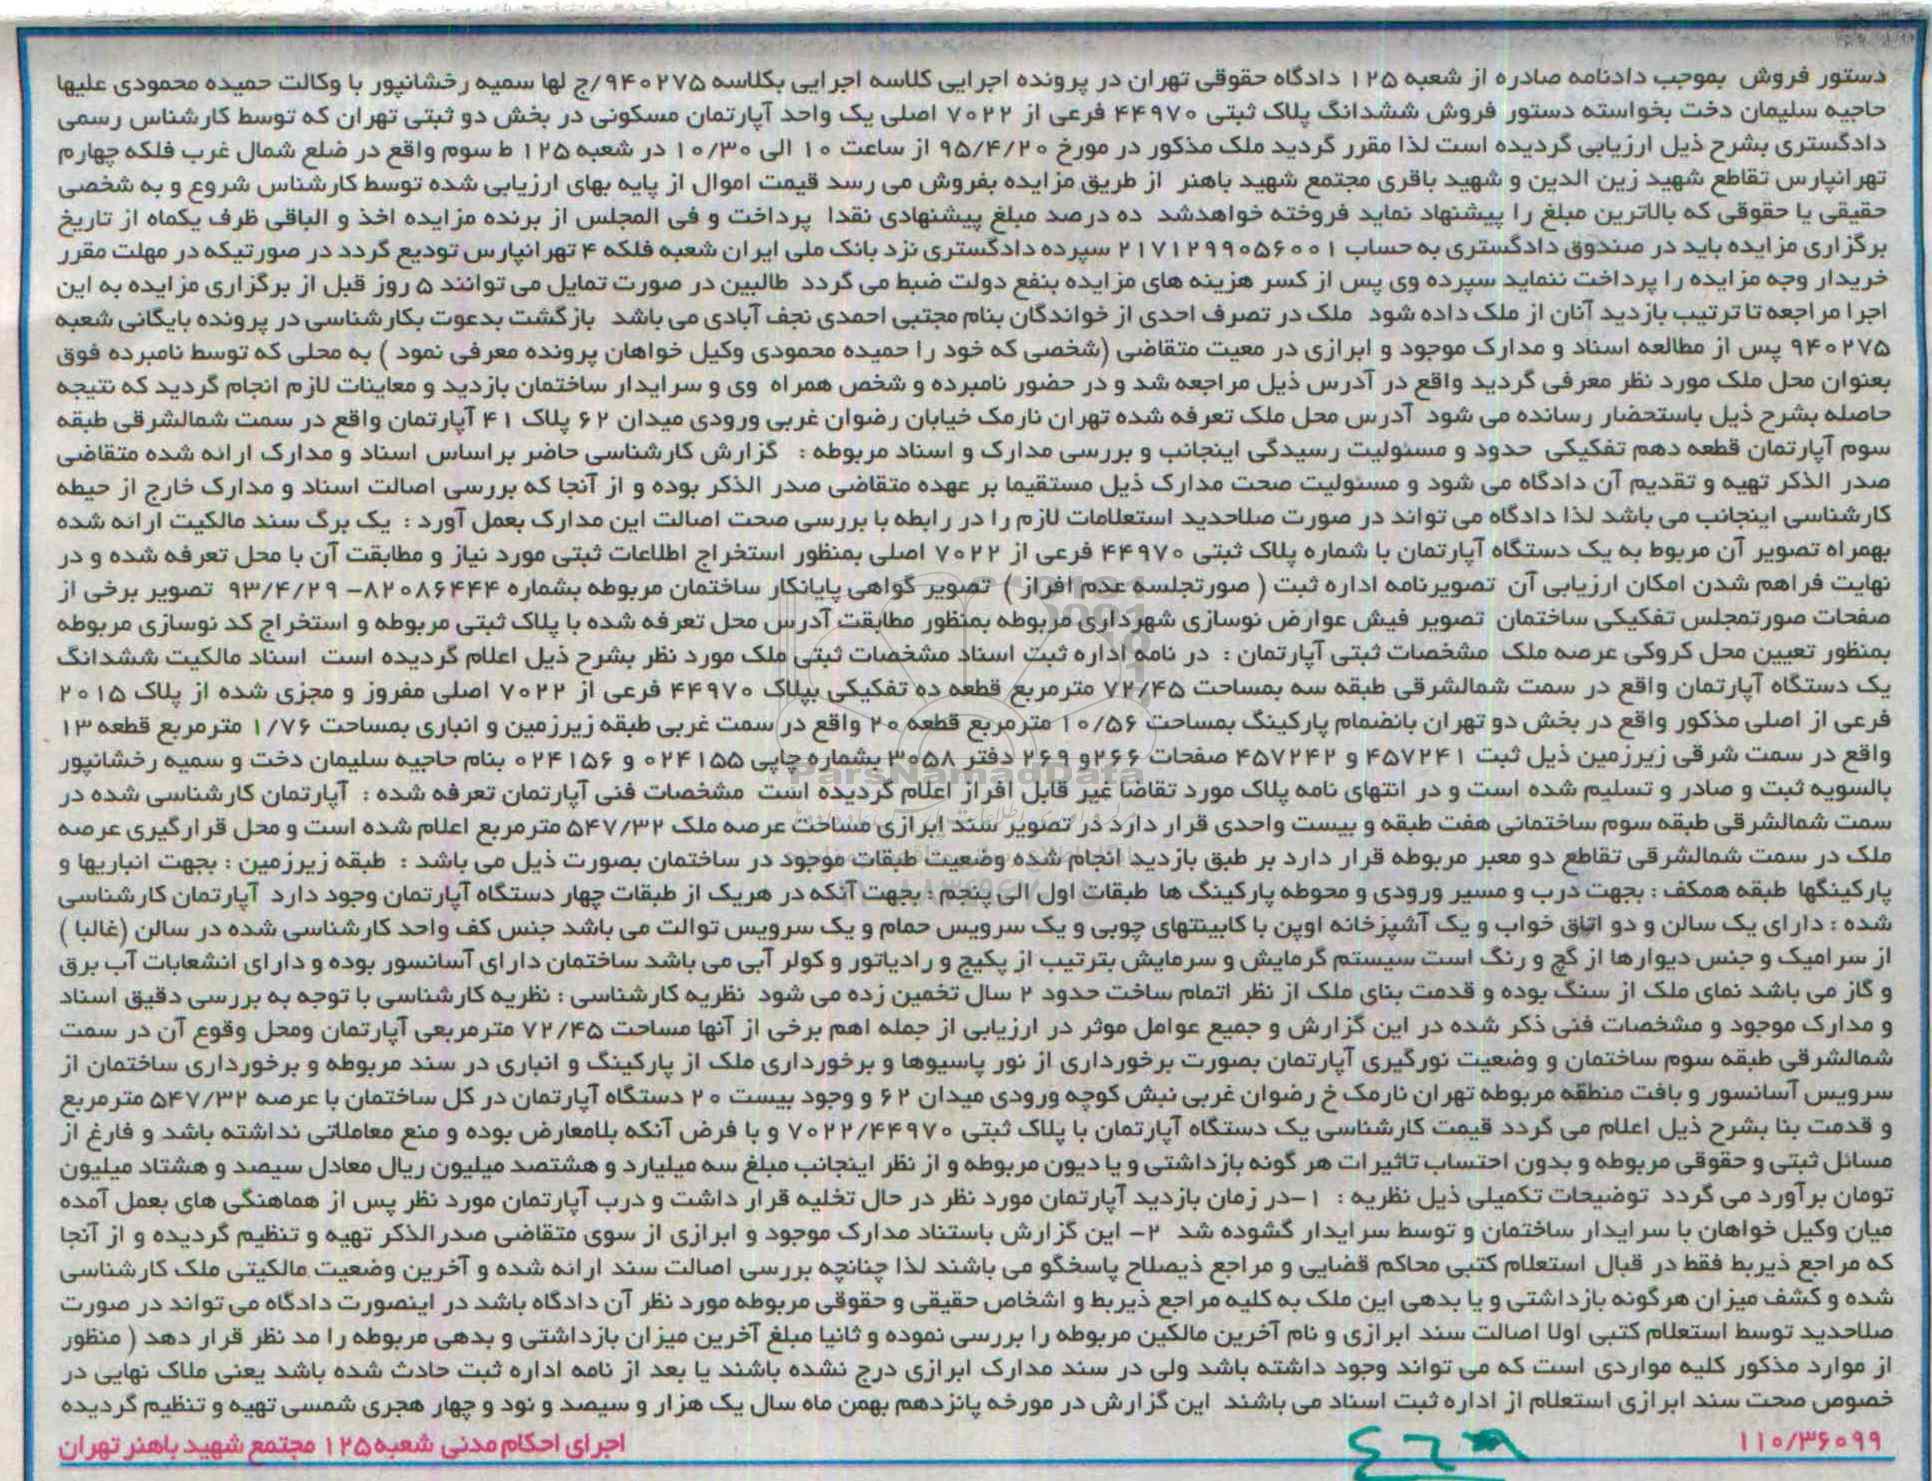 دستور فروش بموجب دادنامه صادره از شعبه ۱۲۵ دادگاه حقوقی تهران در پرونده اجرایی کلاسه اجرایی بکلاسه ۹۴۰۲۷۵/ج لها سمیه رخشانپور با وکالت حمیده محمودی علیها
حاجیه سلیمان دخت بخواسته دستور فروش ششدانگ پلاک ثبتی ۴۴۹۷۰ فرعی از ۷۰۲۲ اصلی یک واحد آپارتمان مسکونی در بخش دو ثبتی تهران که توسط کارشناس رسمی
دادگستری بشرح ذیل ارزیابی گردیده است لذا مقرر گردید ملک مذکور در مورخ ۹۵/۴/۲۰ از ساعت ۱۰ الی ۱۰/۳۰ در شعبه ۱۲۵ ط سوم واقع در ضلع شمال غرب فلکه چهارم
تهرانپارس تقاطع شهید زین الدین و شهید باقری مجتمع شهید باهنر از طریق مزایده بفروش می رسد قیمت اموال از پایه بهای ارزیابی شده توسط کارشناس شروع و به شخصی
حقیقی یا حقوقی که بالاترین مبلغ را پیشنهاد نماید فروخته خواهدشد ده درصد مبلغ پیشنهادی نقدا پرداخت و فی المجلس از برنده مزایده اخذ و الباقی ظرف یکماه از تاریخ
برگزاری مزایده باید در صندوق دادگستری به حساب ۲۱۷۱۲۹۹۰۵۶۰۰۱ سپرده دادگستری نزد بانک ملی ایران شعبه فلکه ۴ تهرانپارس تودیع گردد در صورتیکه در مهلت مقرر
خریدار وجه مزایده را پرداخت ننماید سپرده وی پس از کسر هزینه های مزایده بنفع دولت ضبط می گردد طالبین در صورت تمایل می توانند ۵ روز قبل از برگزاری مزایده به این
اجرا مراجعه تا ترتیب بازدید آنان از ملک داده شود ملک در تصرف احدی از خواندگان بنام مجتبی احمدی نجف آبادی می باشد بازگشت بدعوت بکارشناسی در پرونده بایگانی شعبه
۹۴۰۲۷۵ پس از مطالعه اسناد و مدارک موجود و ابرازی در معیت متقاضی (شخصی که خود را حمیده محمودی وکیل خواهان پرونده معرفی نمود ) به محلی که توسط نامبرده فوق
بعنوان محل ملک مورد نظر معرفی گردید واقع در آدرس ذیل مراجعه شد و در حضور نامبرده و شخص همراه وی و سرایدار ساختمان بازدید و معاینات لازم انجام گردید که نتیجه
حاصله بشرح ذیل باستحضار رسانده می شود آدرس محل ملک تعرفه شده تهران نارمک خیابان رضوان غربی ورودی میدان ۶۲ پلاک ۴۱ آپارتمان واقع در سمت شمالشرقی طبقه
سوم آپارتمان قطعه دهم تفکیکی حدود و مسئولیت رسیدگی اینجانب و بررسی مدارک و اسناد مربوطه : گزارش کارشناسی حاضر براساس اسناد و مدارک ارائه شده متقاضی
صدر الذکر تهیه و تقدیم آن دادگاه می شود و مسئولیت صحت مدارک ذیل مستقیما بر عهده متقاضی صدر الذکر بوده و از آنجا که بررسی اصالت اسناد و مدارک خارج از حیطه
کارشناسی اینجانب می باشد لذا دادگاه می تواند در صورت صلاحدید استعلامات لازم را در رابطه با بررسی صحت اصالت این مدارک بعمل آورد : یک برگ سند مالکیت ارائه شده
بهمراه تصویر آن مربوط به یک دستگاه آپارتمان با شماره پلاک ثبتی ۴۴۹۷۰ فرعی از ۷۰۲۲ اصلی بمنظور استخراج اطلاعات ثبتی مورد نیاز و مطابقت آن با محل تعرفه شده و در
نهایت فراهم شدن امکان ارزیابی آن تصویرنامه اداره ثبت ( صورتجلسه عدم افراز ) تصویر گواهی پایانکار ساختمان مربوطه بشماره ۸۲۰۸۶۴۴۴- ۹۳/۴/۲۹ تصویر برخی از
صفحات صورتمجلس تفکیکی ساختمان تصویر فیش عوارض نوسازی شهرداری مربوطه بمنظور مطابقت آدرس محل تعرفه شده با پلاک ثبتی مربوطه و استخراج کد نوسازی مربوطه
بمنظور تعیین محل کروکی عرصه ملک مشخصات ثبتی آپارتمان : در نامه اداره ثبت اسناد مشخصات ثبتی ملک مورد نظر بشرح ذیل اعلام گردیده است اسناد مالکیت ششدانگ
یک دستگاه آپارتمان واقع در سمت شمالشرقی طبقه سه بمساحت ۷۲/۴۵ مترمربع قطعه ده تفکیکی بپلاک ۴۴۹۷۰ فرعی از ۷۰۲۲ اصلی مفروز و مجزی شده از پلاک ۲۰۱۵
فرعی از اصلی مذکور واقع در بخش دو تهران بانضمام پارکینگ بمساحت ۱۰/۵۶ مترمربع قطعه ۲۰ واقع در سمت غربی طبقه زیرزمین و انباری بمساحت ۱/۷۶ مترمربع قطعه ۱۳
واقع در سمت شرقی زیرزمین ذیل ثبت ۴۵۷۲۴۱ و ۴۵۷۲۴۲ صفحات ۲۶۶و ۲۶۹ دفتر ۳۰۵۸ بشماره چاپی ۰۲۴۱۵۵ و ۰۲۴۱۵۶ بنام حاجیه سلیمان دخت و سمیه رخشانپور
بالسویه ثبت و صادر و تسلیم شده است و در انتهای نامه پلاک مورد تقاضا غیر قابل افراز اعلام گردیده است مشخصات فنی آپارتمان تعرفه شده : آپارتمان کارشناسی شده در
سمت شمالشرقی طبقه سوم ساختمانی هفت طبقه و بیست واحدی قرار دارد در تصویر سند ابرازی مساحت عرصه ملک ۵۴۷/۳۲ مترمربع اعلام شده است و محل قرارگیری عرصه
ملک در سمت شمالشرقی تقاطع دو معبر مربوطه قرار دارد بر طبق بازدید انجام شده وضعیت طبقات موجود در ساختمان بصورت ذیل می باشد : طبقه زیرزمین : بجهت انباریها و
پارکینگها طبقه همکف : بجهت درب و مسیر ورودی و محوطه پارکینگ ها طبقات اول الی پنجم : بجهت آنکه در هریک از طبقات چهار دستگاه آپارتمان وجود دارد آپارتمان کارشناسی
شده : دارای یک سالن و دو اتاق خواب و یک آشپزخانه اوپن با کابینتهای چوبی و یک سرویس حمام و یک سرویس توالت می باشد جنس کف واحد کارشناسی شده در سالن (غالبا )
از سرامیک و جنس دیوارها از گچ و رنگ است سیستم گرمایش و سرمایش بترتیب از پکیج و رادیاتور و کولر آبی می باشد ساختمان دارای آسانسور بوده و دارای انشعابات آب برق
و گاز می باشد نمای ملک از سنگ بوده و قدمت بنای ملک از نظر اتمام ساخت حدود ۲ سال تخمین زده می شود نظریه کارشناسی : نظریه کارشناسی با توجه به بررسی دقیق اسناد
و مدارک موجود و مشخصات فنی ذکر شده در این گزارش و جمیع عوامل موثر در ارزیابی از جمله اهم برخی از آنها مساحت ۷۲/۴۵ مترمربعی آپارتمان ومحل وقوع آن در سمت
شمالشرقی طبقه سوم ساختمان و وضعیت نورگیری آپارتمان بصورت برخورداری از نور پاسیوها و برخورداری ملک از پارکینگ و انباری در سند مربوطه و برخورداری ساختمان از
سرویس آسانسور و بافت منطقه مربوطه تهران نارمک خ رضوان غربی نبش کوچه ورودی میدان ۶۲ و وجود بیست ۲۰ دستگاه آپارتمان در کل ساختمان با عرصه ۵۴۷/۳۲ مترمربع
و قدمت بنا بشرح ذیل اعلام می گردد قیمت کارشناسی یک دستگاه آپارتمان با پلاک ثبتی ۷۰۲۲/۴۴۹۷۰ و با فرض آنکه بلامعارض بوده و منع معاملاتی نداشته باشد و فارغ از
مسائل ثبتی و حقوقی مربوطه و بدون احتساب تاثیرات هر گونه بازداشتی و یا دیون مربوطه و از نظر اینجانب مبلغ سه میلیارد و هشتصد میلیون ریال معادل سیصد و هشتاد میلیون
تومان برآورد می گردد توضیحات تکمیلی ذیل نظریه : ۱-در زمان بازدید آپارتمان مورد نظر در حال تخلیه قرار داشت و درب آپارتمان مورد نظر پس از هماهنگی های بعمل آمده
میان وکیل خواهان با سرایدار ساختمان و توسط سرایدار گشوده شد ۲- این گزارش باستناد مدارک موجود و ابرازی از سوی متقاضی صدرالذکر تهیه و تنظیم گردیده و از آنجا
که مراجع ذیربط فقط در قبال استعلام کتبی محاکم قضایی و مراجع ذیصلاح پاسخگو می باشند لذا چنانچه بررسی اصالت سند ارائه شده و آخرین وضعیت مالکیتی ملک کارشناسی
شده و کشف میزان هرگونه بازداشتی و یا بدهی این ملک به کلیه مراجع ذیربط و اشخاص حقیقی و حقوقی مربوطه مورد نظر آن دادگاه باشد در اینصورت دادگاه می تواند در صورت
صلاحدید توسط استعلام کتبی اولا اصالت سند ابرازی و نام آخرین مالکین مربوطه را بررسی نموده و ثانیا مبلغ آخرین میزان بازداشتی و بدهی مربوطه را مد نظر قرار دهد ( منظور
از موارد مذکور کلیه مواردی است که می تواند وجود داشته باشد ولی در سند مدارک ابرازی درج نشده باشند یا بعد از نامه اداره ثبت حادث شده باشد یعنی ملاک نهایی در
خصوص صحت سند ابرازی استعلام از اداره ثبت اسناد می باشند این گزارش در مورخه پانزدهم بهمن ماه سال یک هزار و سیصد و نود و چهار هجری شمسی تهیه و تنظیم گردیده
۱۱۰/۳۶۰۹۹ اجرای احکام مدنی شعبه۱۲۵ مجتمع شهید باهنر تهران
ParsNamadData